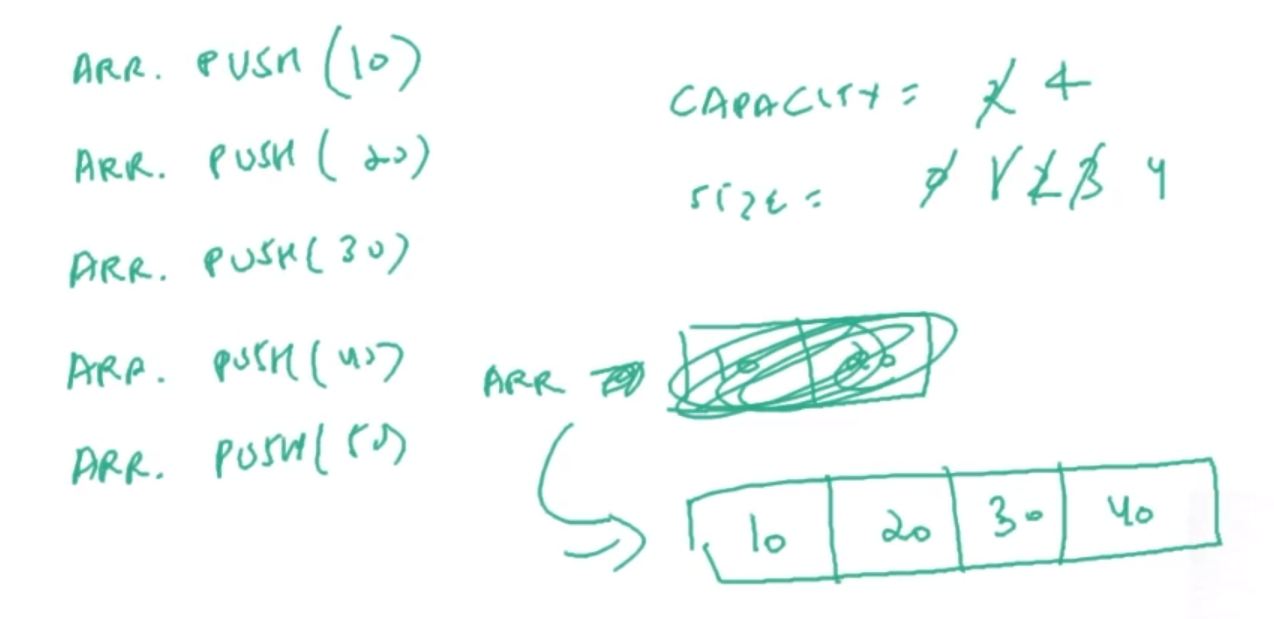 ARR. PUSH (10)
ARR. PUSH ( 20)
ARR. PUSH( 30)
ARR. PUSH( 40)
ARR. PUSH( 50)
CAPACITY = 2 4
SIZE = 0 1 2 3 4
ARR
10 20 30 40